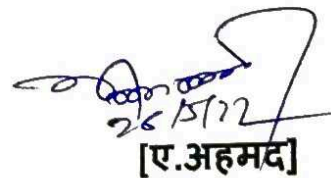 26/5/22
[ए.अहमद]